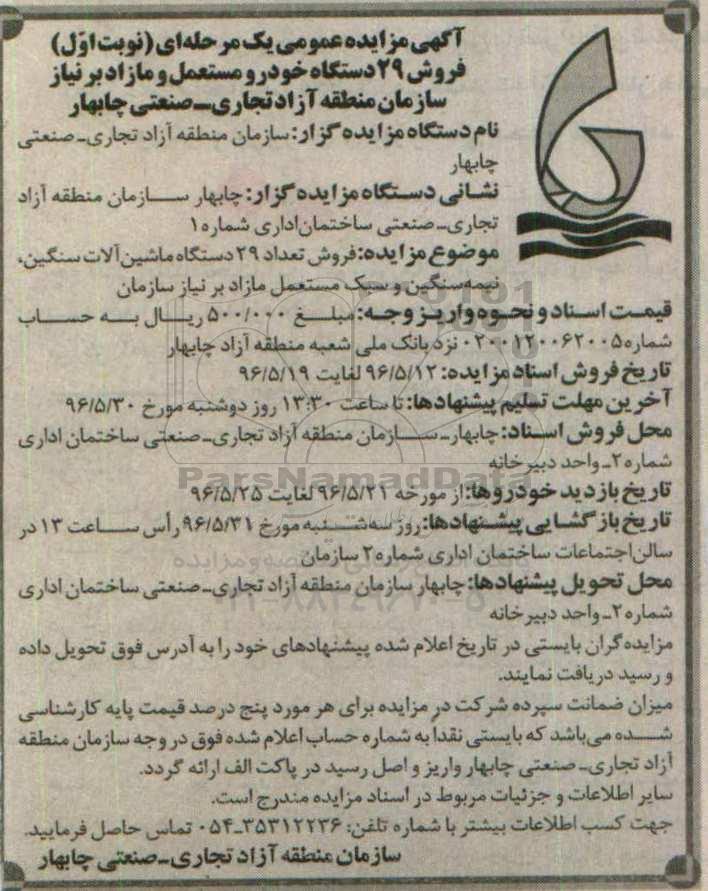 آگهی مزایده عمومی یک مرحله‌ای (نوبت اوّل)
فروش ۲۹ دستگاه خودرو مستعمل و مازاد بر نیاز
سازمان منطقه آزاد تجاری_صنعتی چابهار
نام دستگاه مزایده گزار: سازمان منطقه آزاد تجاری_صنعتی
چابهار
نشانی دستگاه مزایده گزار: چابهار سازمان منطقه آزاد
تجاری_صنعتی ساختمان اداری شماره ۱
موضوع مزایده: فروش تعداد ۲۹ دستگاه ماشین‌آلات سنگین،
نیمه‌سنگین و سبک مستعمل مازاد بر نیاز سازمان
قیمت اسناد و نحوه واریز وجه: مبلغ ۵۰۰/۰۰۰ ریال به حساب
شماره ۰۲۰۰۱۲۰۰۶۲۰۰۵ نزد بانک ملی شعبه منطقه آزاد چابهار
تاریخ فروش اسناد مزایده: ۹۶/۵/۱۲ لغایت ۹۶/۵/۱۹
آخرین مهلت تسلیم پیشنهادها: تا ساعت ۱۳:۳۰ روز دوشنبه مورخ ۹۶/۵/۳۰
محل فروش اسناد: چابهار_سازمان منطقه آزاد تجاری_صنعتی ساختمان اداری
شماره ۲_واحد دبیرخانه
تاریخ بازدید خودروها: از مورخه ۹۶/۵/۲۱ لغایت ۹۶/۵/۲۵
تاریخ بازگشایی پیشنهادها: روز سه‌شنبه مورخ ۹۶/۵/۳۱ رأس ساعت ۱۳ در
سالن اجتماعات ساختمان اداری شماره ۲ سازمان
محل تحویل پیشنهادها: چابهار سازمان منطقه آزاد تجاری_صنعتی ساختمان اداری
شماره ۲_واحد دبیرخانه
مزایده‌گران بایستی در تاریخ اعلام شده پیشنهادهای خود را به آدرس فوق تحویل داده
و رسید دریافت نمایند.
میزان ضمانت سپرده شرکت در مزایده برای هر مورد پنج درصد قیمت پایه کارشناسی
شده می‌باشد که بایستی نقداً به شماره حساب اعلام شده فوق در وجه سازمان منطقه
آزاد تجاری_صنعتی چابهار واریز و اصل رسید در پاکت الف ارائه گردد.
سایر اطلاعات و جزئیات مربوط در اسناد مزایده مندرج است.
جهت کسب اطلاعات بیشتر با شماره تلفن: ۳۵۳۱۲۲۳۶_۰۵۴ تماس حاصل فرمایید.
سازمان منطقه آزاد تجاری_صنعتی چابهار
ParsNamadData